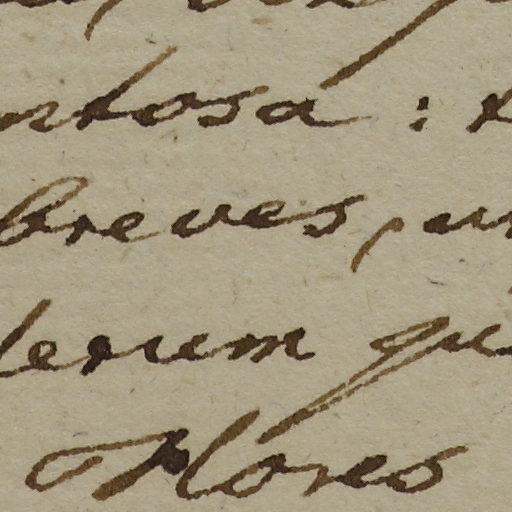 ntosa :
breves, un
lerum qu
Flores